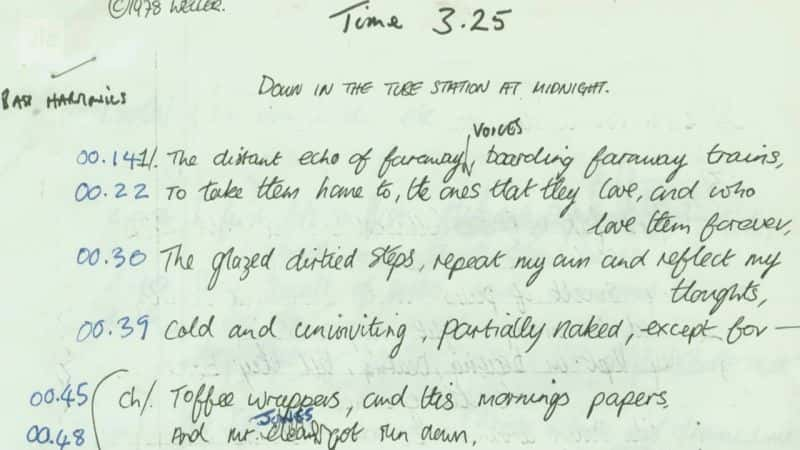 ©1978 WELLER.
Time 3.25
BASS HARMONICS
DOWN IN THE TUBE STATION AT MIDNIGHT.
VOICES
00.14 1/. The distant echo of faraway boarding faraway trains,
00.22 To take them home to, the ones that they love, and who
love them forever,
00.30 The glazed dirtied steps, repeat my own and reflect my
thoughts,
00.39 Cold and uninviting, partially naked, except for —
00.45 Ch/. Toffee wrappers, and this mornings papers,
JONES
00.48 And mr. got run down,